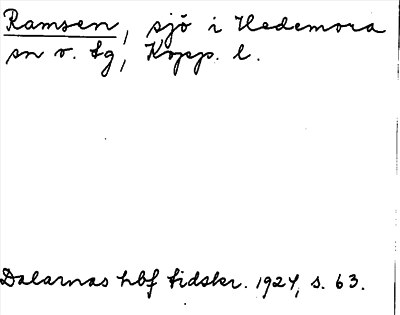 Ramsen, sjö i Hedemora
sn o. tg, Kopp. l.
Dalarnas hbf tidskr. 1924, s. 63.